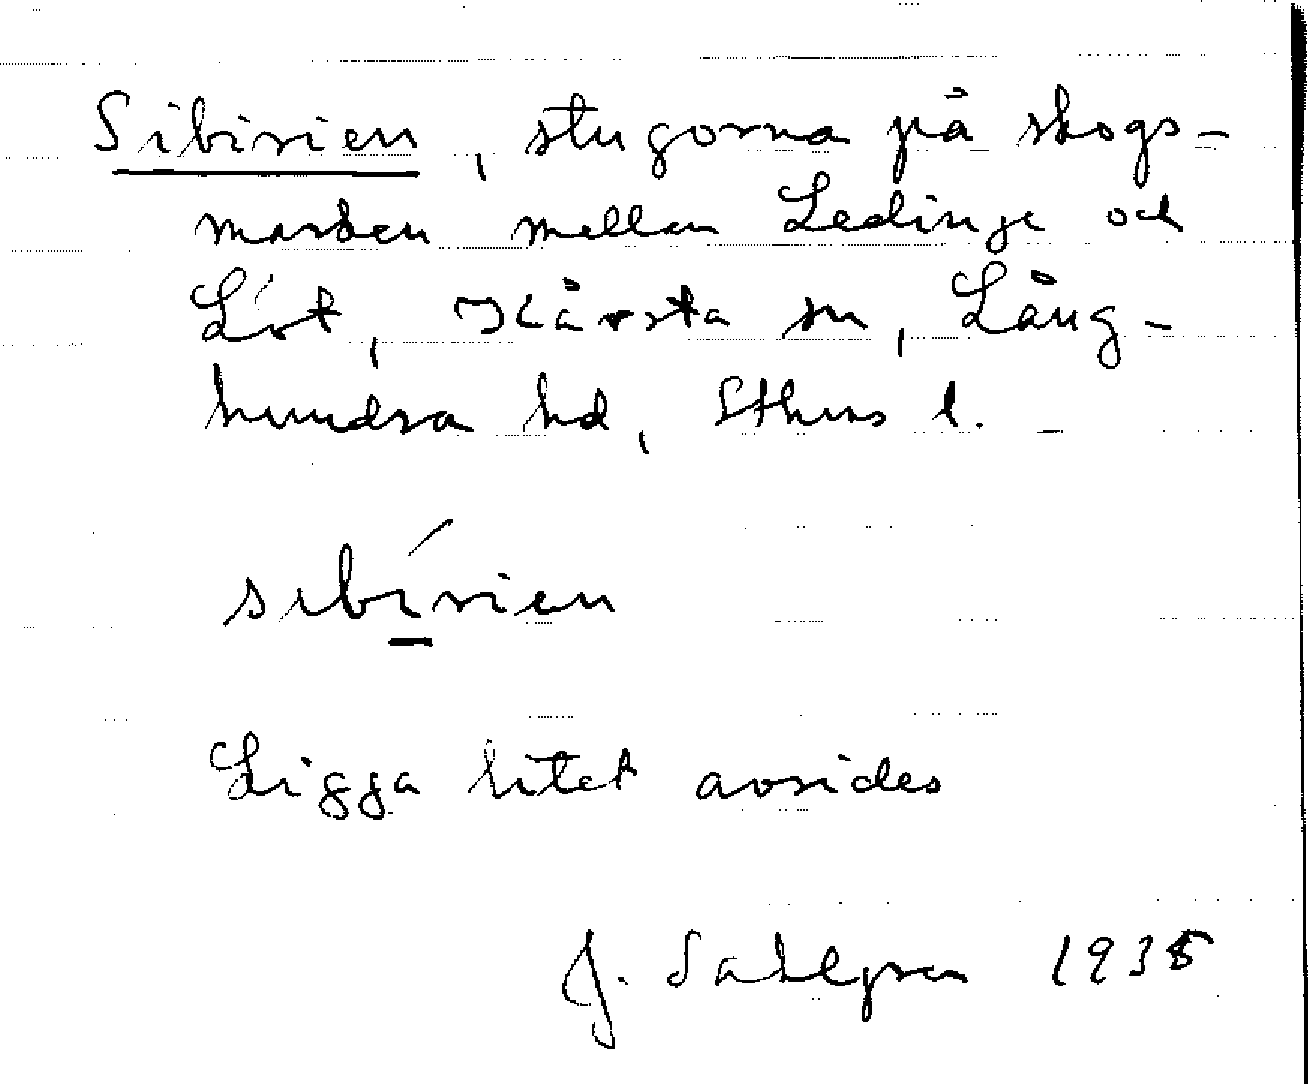 Sibirien, stugorna på skogs-
marken mellan Ledinge och
Löt, Kårsta sn, Lång-
hundra hd, Sthms l.
sibírien
Ligga litet avsides
J. Sahlgren 1935